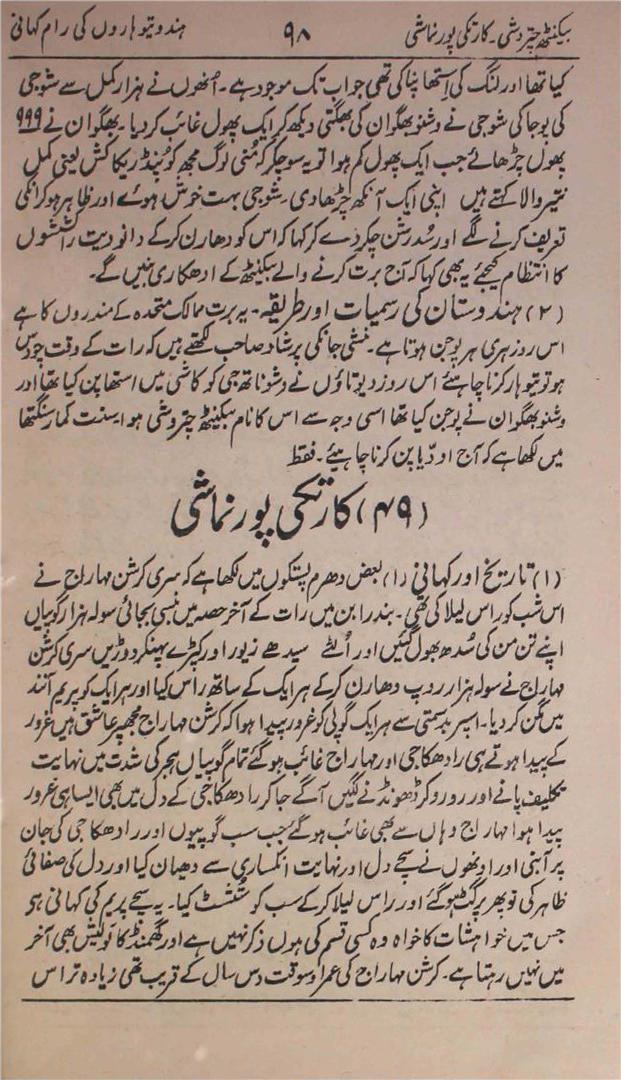 بیکنٹھ چتردشی۔ کارتکی پورنماشی ۹۸ ہندو تیوہاروں کی رام کہانی
کیا تھا اور لنگ کی استھاپنا کی تھی جو اب تک موجود ہے۔ اُنھوں نے ہزار کمل سے شوجی
کی پوجا کی شوجی نے وشنو بھگوان کی بھگتی دیکھ کر ایک پھول غائب کر دیا۔ بھگوان نے ۹۹۹
پھول چڑھائے جب ایک پھول کم ہوا تو یہ سوچکر کہ مُنی لوگ مجھ کو پنڈریکاکش یعنی کمل
نیتر والا کہتے ہیں اپنی ایک آنکھ چڑھا دی۔ شوجی بہت خوش ہوئے اور ظاہر ہو کر انکی
تعریف کرنے لگے اور سُدرشن چکر دے کر کہا کہ اس کو دھارن کر کے دانو دیت راکشسوں
کا انتظام کیجئے یہ بھی کہا کہ آج برت کرنے والے بیکنٹھ کے ادھکاری بنیں گے۔
(۲) ہندوستان کی رسمیات اور طریقہ۔ یہ برت ممالک متحدہ کے مندروں کا ہے
اس روز ہری ہر پوجن ہوتا ہے۔ منشی جانکی پرشاد صاحب لکھتے ہیں کہ رات کے وقت چودس
ہو تو تیوہار کرنا چاہئے اس روز دیوتاؤں نے وشوناتھ جی کو کاشی میں استھاپن کیا تھا اور
وشنو بھگوان نے پوجن کیا تھا اسی وجہ سے اس کا نام بیکنٹھ چتردشی ہوا سنت کمار سنگھتا
میں لکھا ہے کہ آج اودیاپن کرنا چاہیئے۔ فقط
(۴۹) کارتکی پورنماشی
(۱) تاریخ اور کہانی (۱) بعض دھرم پستکوں میں لکھا ہے کہ سری کرشن مہاراج نے
اس شب کو راس لیلا کی تھی۔ بندرابن میں رات کے آخر حصہ میں بنسی بجائی سولہ ہزار گوپیاں
اپنے تن من کی سُدھ بھول گئیں اور اُلٹے سیدھے زیور اور کپڑے پہنکر دوڑیں سری کرشن
مہاراج نے سولہ ہزار روپ دھارن کر کے ہر ایک کے ساتھ راس کیا اور ہر ایک کو پریم آنند
میں مگن کر دیا۔ اسپر بدمستی سے ہر ایک گوپی کو غرور پیدا ہوا کہ کرشن مہاراج مجھپر عاشق ہیں غرور
کے پیدا ہوتے ہی رادھکا جی اور مہاراج غائب ہو گئے تمام گوپیاں ہجر کی شدت میں نہایت
تکلیف پانے اور رو رو کر ڈھونڈنے لگیں آگے جا کر رادھکا جی کے دل میں بھی ایسا ہی غرور
پیدا ہوا مہاراج وہاں سے بھی غائب ہو گئے جب سب گوپیوں اور رادھکا جی کی جان
پر آبنی اور اونھوں نے سچے دل اور نہایت انکساری سے دھیان کیا اور دل کی صفائی
ظاہر کی تو پھر پرگٹ ہو گئے اور راس لیلا کر کے سب کو سنتشٹ کیا۔ یہ سچے پریم کی کہانی ہی
جس میں خواہشات کا خواہ وہ کسی قسم کی ہوں ذکر نہیں ہے اور گھمنڈ کا تو لیش بھی آخر
میں نہیں رہتا ہے۔ کرشن مہاراج کی عمر اوسوقت دس سال کے قریب تھی زیادہ تر اس